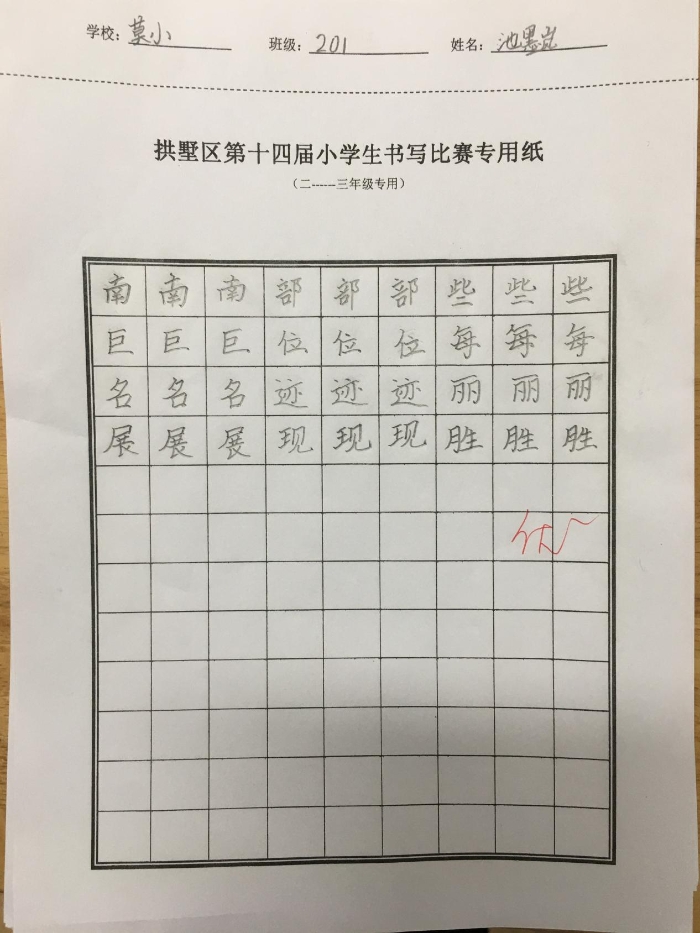 学校：莫小 班级：201 姓名：池墨岚
拱墅区第十四届小学生书写比赛专用纸
（二------三年级专用）
南南南部部部些些些
巨巨巨位位位每每每
名名名迹迹迹丽丽丽
展展展现现现胜胜胜
优